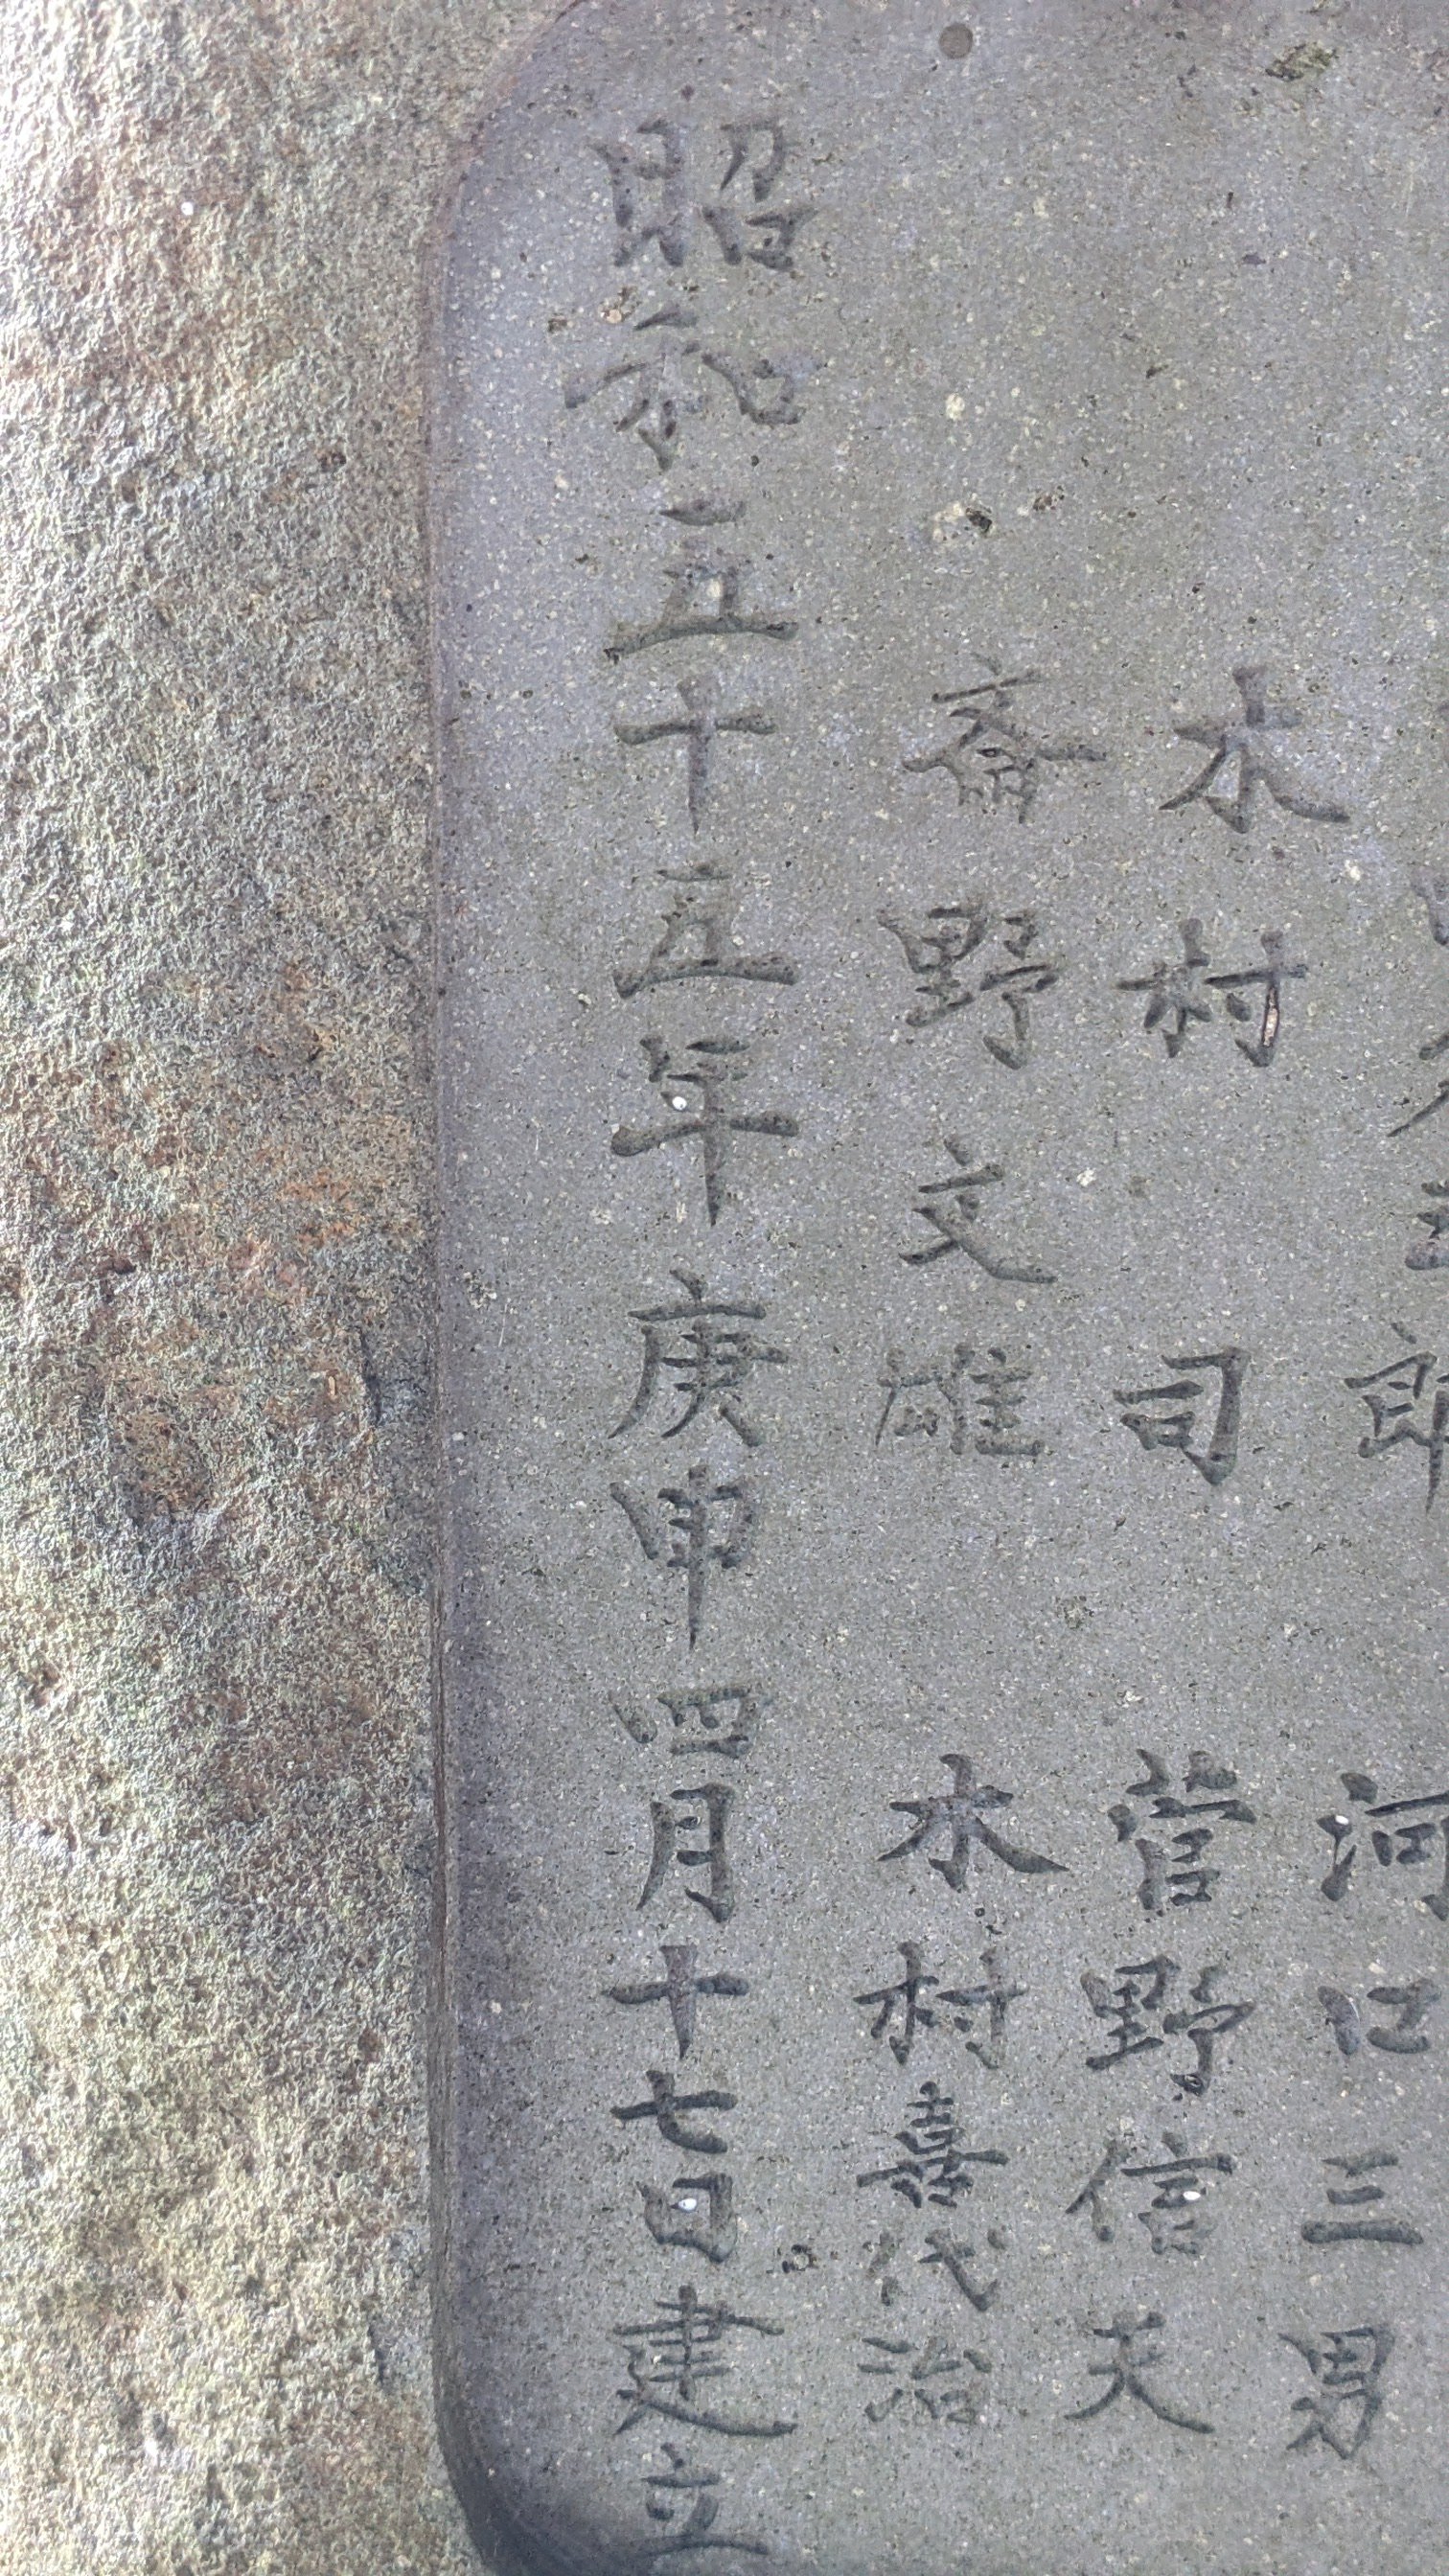 郎 河口三男
木村 司 菅野信夫
斎野文雄 木村喜代治
昭和五十五年庚申四月十七日建立